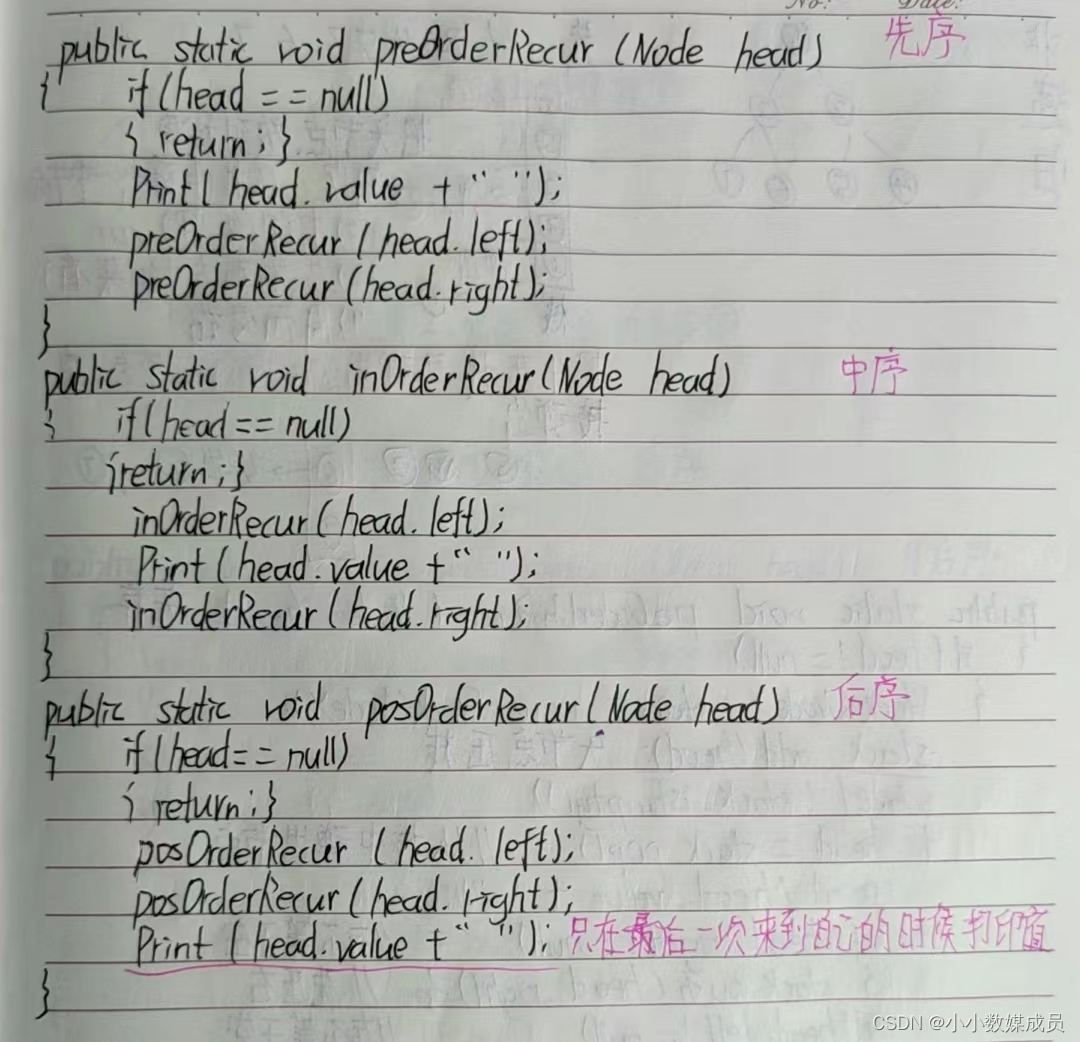 No: Date:
public static void preOrderRecur (Node head) 先序
{ if (head == null)
{ return ; }
Print ( head. value + " ");
preOrderRecur (head. left);
preOrderRecur (head. right);
}
public static void inOrderRecur (Node head) 中序
{ if (head == null)
{return ; }
inOrderRecur (head. left);
Print (head. value + " ");
inOrderRecur (head. right);
}
public static void posOrderRecur (Node head) 后序
{ if (head == null)
{ return ; }
posOrderRecur (head. left);
posOrderRecur (head. right);
Print (head. value + " "); 只在最后一次来到自己的时候打印值
}
CSDN @小小数媒成员